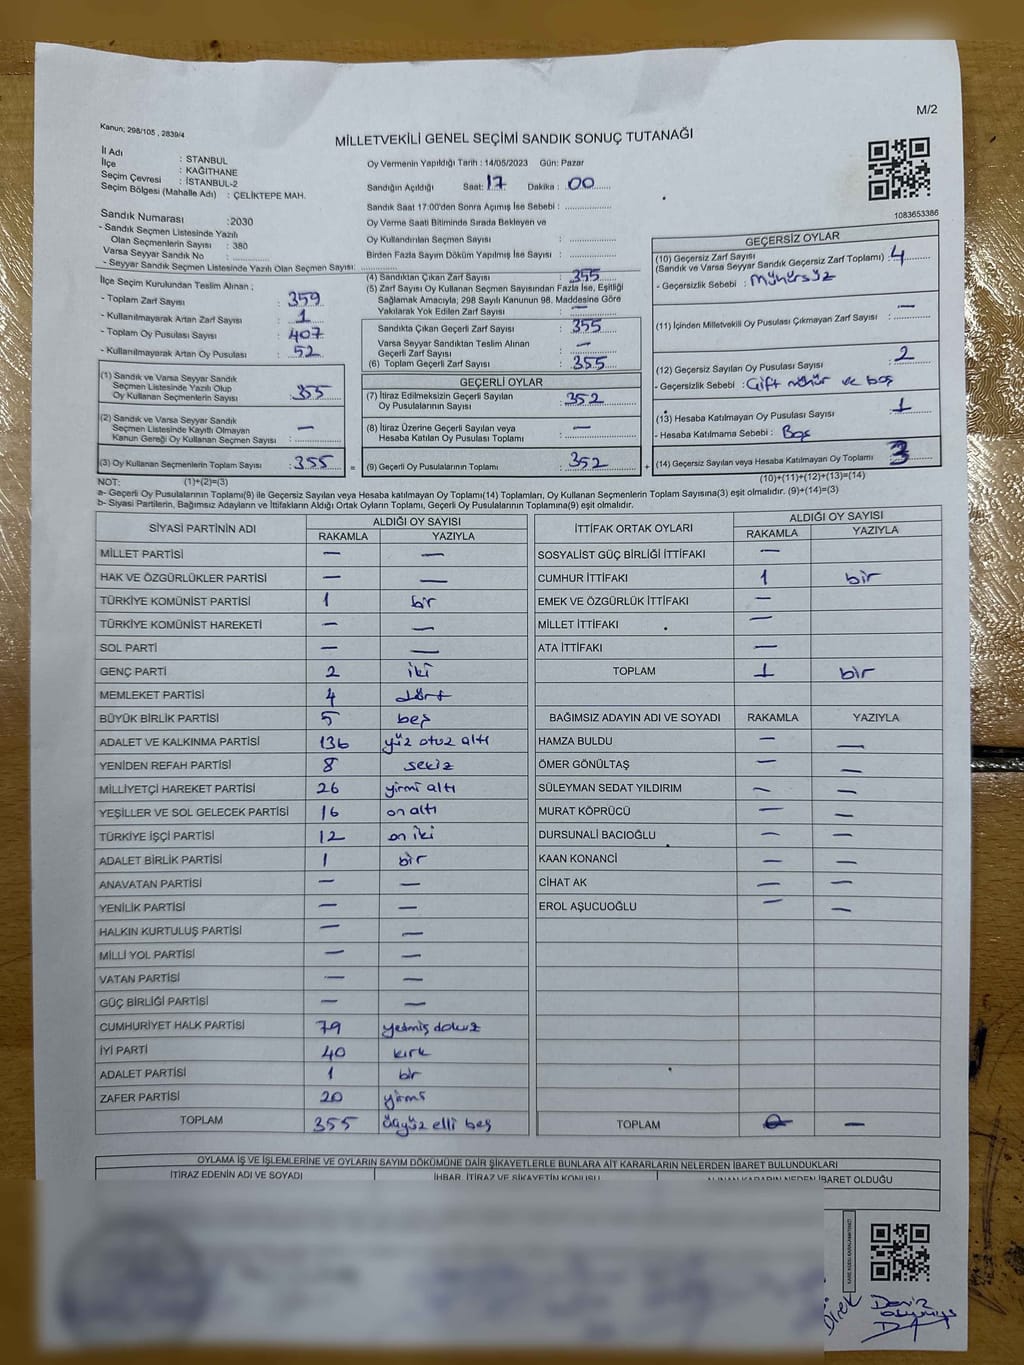 M/2
Kanun; 298/105 , 2839/4
MİLLETVEKİLİ GENEL SEÇİMİ SANDIK SONUÇ TUTANAĞI
İl Adı : STANBUL
İlçe : KAĞITHANE
Seçim Çevresi : İSTANBUL-2
Seçim Bölgesi (Mahalle Adı) : ÇELİKTEPE MAH.
Oy Vermenin Yapıldığı Tarih : 14/05/2023 Gün: Pazar
Sandığın Açıldığı Saat: 17 Dakika : 00
Sandık Saat 17:00'den Sonra Açımış İse Sebebi :
Sandık Numarası :2030
- Sandık Seçmen Listesinde Yazılı
Olan Seçmenlerin Sayısı : 380
Varsa Seyyar Sandık No :
- Seyyar Sandık Seçmen Listesinde Yazılı Olan Seçmen Sayısı:
Oy Verme Saati Bitiminde Sırada Bekleyen ve
Oy Kullandırılan Seçmen Sayısı :
Birden Fazla Sayım Döküm Yapılmış İse Sayısı :
1083653386
İlçe Seçim Kurulundan Teslim Alınan ;
- Toplam Zarf Sayısı : 359
- Kullanılmayarak Artan Zarf Sayısı : 1
- Toplam Oy Pusulası Sayısı : 407
- Kullanılmayarak Artan Oy Pusulası : 52
(1) Sandık ve Varsa Seyyar Sandık
Seçmen Listesinde Yazılı Olup
Oy Kullanan Seçmenlerin Sayısı : 355
(2) Sandık ve Varsa Seyyar Sandık
Seçmen Listesinde Kayıtlı Olmayan
Kanun Gereği Oy Kullanan Seçmen Sayısı : —
(3) Oy Kullanan Seçmenlerin Toplam Sayısı : 355 =
(4) Sandıktan Çıkan Zarf Sayısı : 355
(5) Zarf Sayısı Oy Kullanan Seçmen Sayısından Fazla İse, Eşitliği
Sağlamak Amacıyla; 298 Sayılı Kanunun 98. Maddesine Göre
Yakılarak Yok Edilen Zarf Sayısı : —
Sandıkta Çıkan Geçerli Zarf Sayısı : 355
Varsa Seyyar Sandıktan Teslim Alınan
Geçerli Zarf Sayısı : —
(6) Toplam Geçerli Zarf Sayısı : 355
GEÇERLİ OYLAR
(7) İtiraz Edilmeksizin Geçerli Sayılan
Oy Pusulalarının Sayısı : 352
(8) İtiraz Üzerine Geçerli Sayılan veya
Hesaba Katılan Oy Pusulası Toplamı : —
(9) Geçerli Oy Pusulalarının Toplamı : 352 +
GEÇERSİZ OYLAR
(10) Geçersiz Zarf Sayısı
(Sandık ve Varsa Seyyar Sandık Geçersiz Zarf Toplamı) : 4
- Geçersizlik Sebebi : Mühürsüz
(11) İçinden Milletvekili Oy Pusulası Çıkmayan Zarf Sayısı : —
(12) Geçersiz Sayılan Oy Pusulası Sayısı : 2
- Geçersizlik Sebebi : Çift mühür ve boş
(13) Hesaba Katılmayan Oy Pusulası Sayısı 1
- Hesaba Katılmama Sebebi : Boş
(14) Geçersiz Sayılan veya Hesaba Katılmayan Oy Toplamı : 3
NOT: (1)+(2)=(3)
(10)+(11)+(12)+(13)=(14)
a- Geçerli Oy Pusulalarının Toplamı(9) ile Geçersiz Sayılan veya Hesaba katılmayan Oy Toplamı(14) Toplamları, Oy Kullanan Seçmenlerin Toplam Sayısına(3) eşit olmalıdır. (9)+(14)=(3)
b- Siyasi Partilerin, Bağımsız Adayların ve İttifakların Aldığı Ortak Oyların Toplamı, Geçerli Oy Pusulalarının Toplamına(9) eşit olmalıdır.
SİYASİ PARTİNİN ADI ALDIĞI OY SAYISI
RAKAMLA YAZIYLA
MİLLET PARTİSİ — —
HAK VE ÖZGÜRLÜKLER PARTİSİ — —
TÜRKİYE KOMÜNİST PARTİSİ 1 bir
TÜRKİYE KOMÜNİST HAREKETİ — —
SOL PARTİ — —
GENÇ PARTİ 2 iki
MEMLEKET PARTİSİ 4 dört
BÜYÜK BİRLİK PARTİSİ 5 beş
ADALET VE KALKINMA PARTİSİ 136 yüz otuz altı
YENİDEN REFAH PARTİSİ 8 sekiz
MİLLİYETÇİ HAREKET PARTİSİ 26 yirmi altı
YEŞİLLER VE SOL GELECEK PARTİSİ 16 on altı
TÜRKİYE İŞÇİ PARTİSİ 12 on iki
ADALET BİRLİK PARTİSİ 1 bir
ANAVATAN PARTİSİ — —
YENİLİK PARTİSİ — —
HALKIN KURTULUŞ PARTİSİ — —
MİLLİ YOL PARTİSİ — —
VATAN PARTİSİ — —
GÜÇ BİRLİĞİ PARTİSİ — —
CUMHURİYET HALK PARTİSİ 79 yetmiş dokuz
İYİ PARTİ 40 kırk
ADALET PARTİSİ 1 bir
ZAFER PARTİSİ 20 yirmi
TOPLAM 355 üçyüz elli beş
İTTİFAK ORTAK OYLARI ALDIĞI OY SAYISI
RAKAMLA YAZIYLA
SOSYALİST GÜÇ BİRLİĞİ İTTİFAKI —
CUMHUR İTTİFAKI 1 bir
EMEK VE ÖZGÜRLÜK İTTİFAKI —
MİLLET İTTİFAKI —
ATA İTTİFAKI —
TOPLAM 1 bir
BAĞIMSIZ ADAYIN ADI VE SOYADI RAKAMLA YAZIYLA
HAMZA BULDU — —
ÖMER GÖNÜLTAŞ — —
SÜLEYMAN SEDAT YILDIRIM — —
MURAT KÖPRÜCÜ — —
DURSUNALİ BACIOĞLU — —
KAAN KONANCİ — —
CİHAT AK — —
EROL AŞUCUOĞLU — —
TOPLAM 0 —
OYLAMA İŞ VE İŞLEMLERİNE VE OYLARIN SAYIM DÖKÜMÜNE DAİR ŞİKAYETLERLE BUNLARA AİT KARARLARIN NELERDEN İBARET BULUNDUKLARI
İTİRAZ EDENİN ADI VE SOYADI İHBAR, İTİRAZ VE ŞİKAYETİN KONUSU ALINAN KARARIN NEDEN İBARET OLDUĞU
KARE KODU KARALAMAYINIZ!
Direk
Deniz